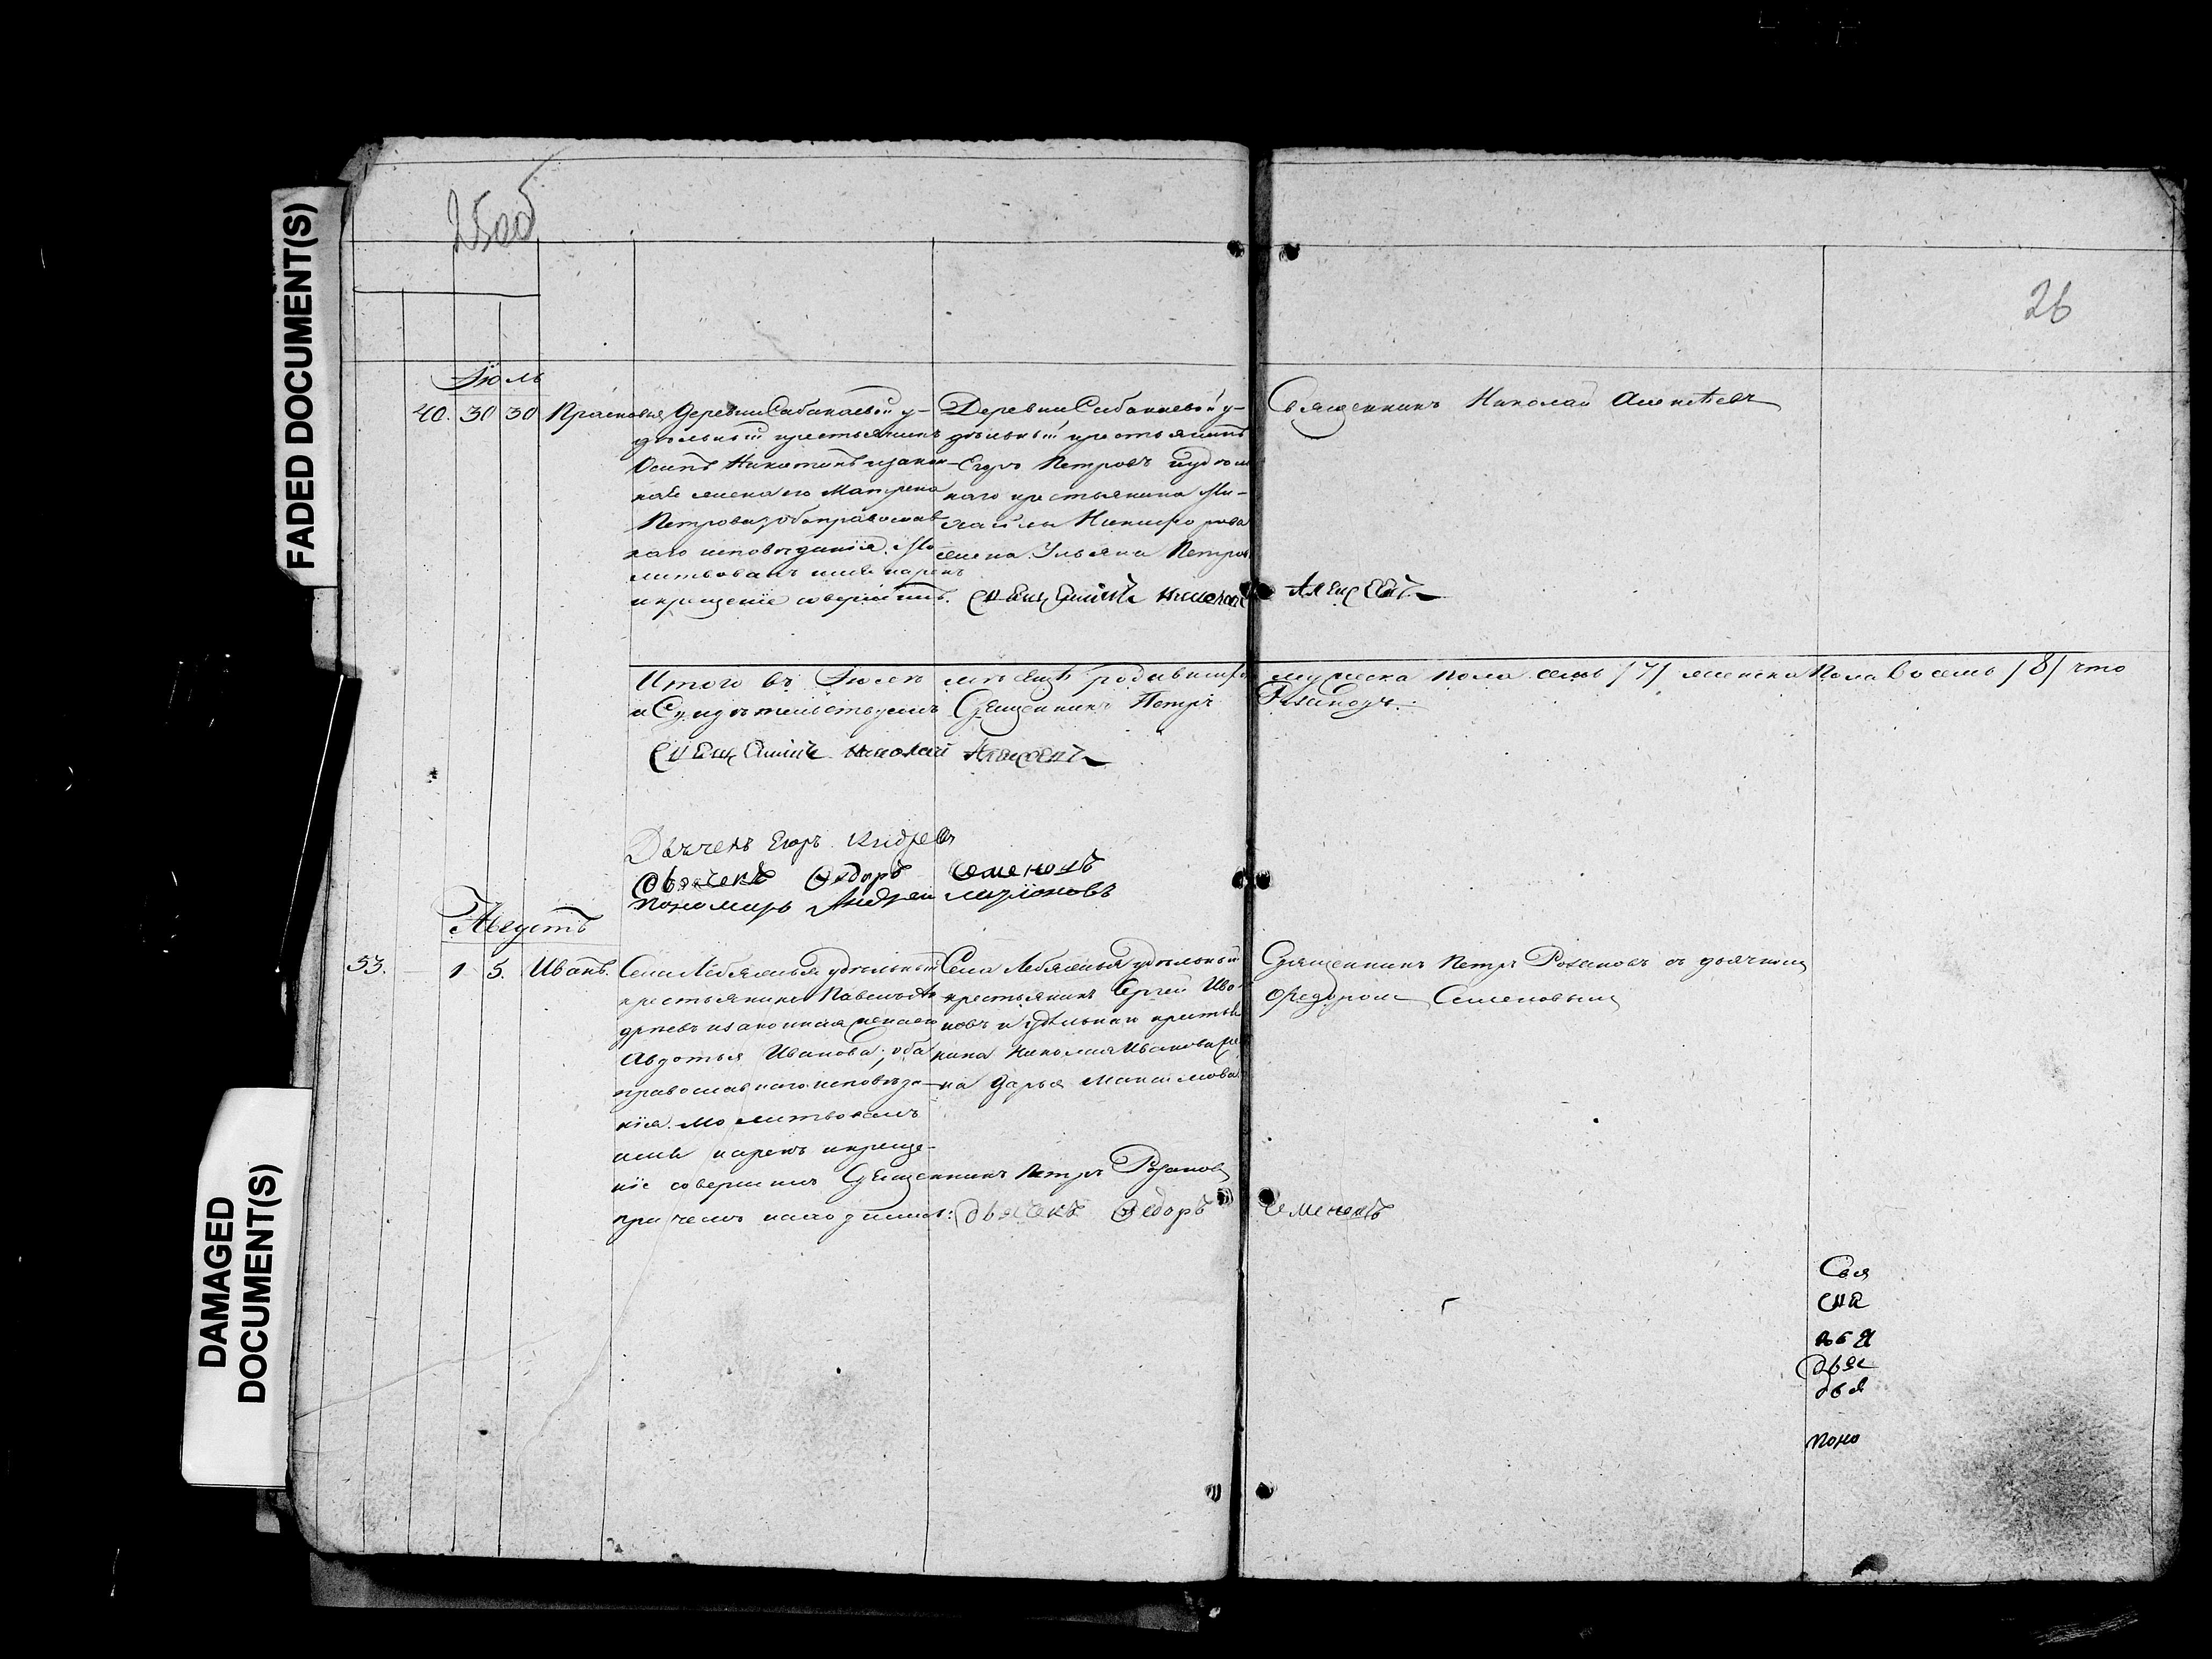 FADED DOCUMENT(S)
DAMAGED DOCUMENT(S)
25об
26
Іюль
40. 30 30 Прасковья
Деревни Сабакаевой у-
дѣльный крестьянинъ
Осипъ Никитинъ и закон-
ная жена его Матрена
Петрова; оба православ
наго исповѣданія. Мо
литвовалъ имя нарекъ
и крещеніе совершилъ.
Деревни Сабакаевой у-
дѣльный крестьянинъ
Егоръ Петровъ и удѣль
наго крестьянина Ми-
хайлы Никифорова
жена Ульяна Петров
Священникъ Николай Алексѣевъ
Священникъ Николай Алексѣевъ
Итого въ Іюлѣ мѣсяцѣ родившихся мужеска пола семь /7/ женска пола восемь /8/ что
и Свидѣтельствуемъ Священникъ Петръ Розановъ.
Священникъ Николай Алексѣевъ
Дьячекъ Егоръ Андреевъ
Дьячекъ Ѳедоръ Семеновъ
Пономарь Андрей
Августъ
53. 1 5. Иванъ.
Села Лебяжья удѣльный
крестьянинъ Павелъ Ан
дреевъ и законная жена его
Авдотья Иванова; оба
православнаго исповѣда-
нія. Молитвовалъ
имя нарекъ и креще-
ніе совершилъ Священникъ Петръ Розановъ
при чемъ находился: дьячекъ Ѳедоръ Семеновъ
Села Лебяжья удѣльный
крестьянинъ Сергей Ива-
новъ и удѣльнаго крестья
нина Николая Иванова же
на Дарья Максимова
Священникъ Петръ Розановъ съ дьячкомъ
Ѳедоромъ Семеновымъ
Свя
свя
дья
дьяч
дья
поно